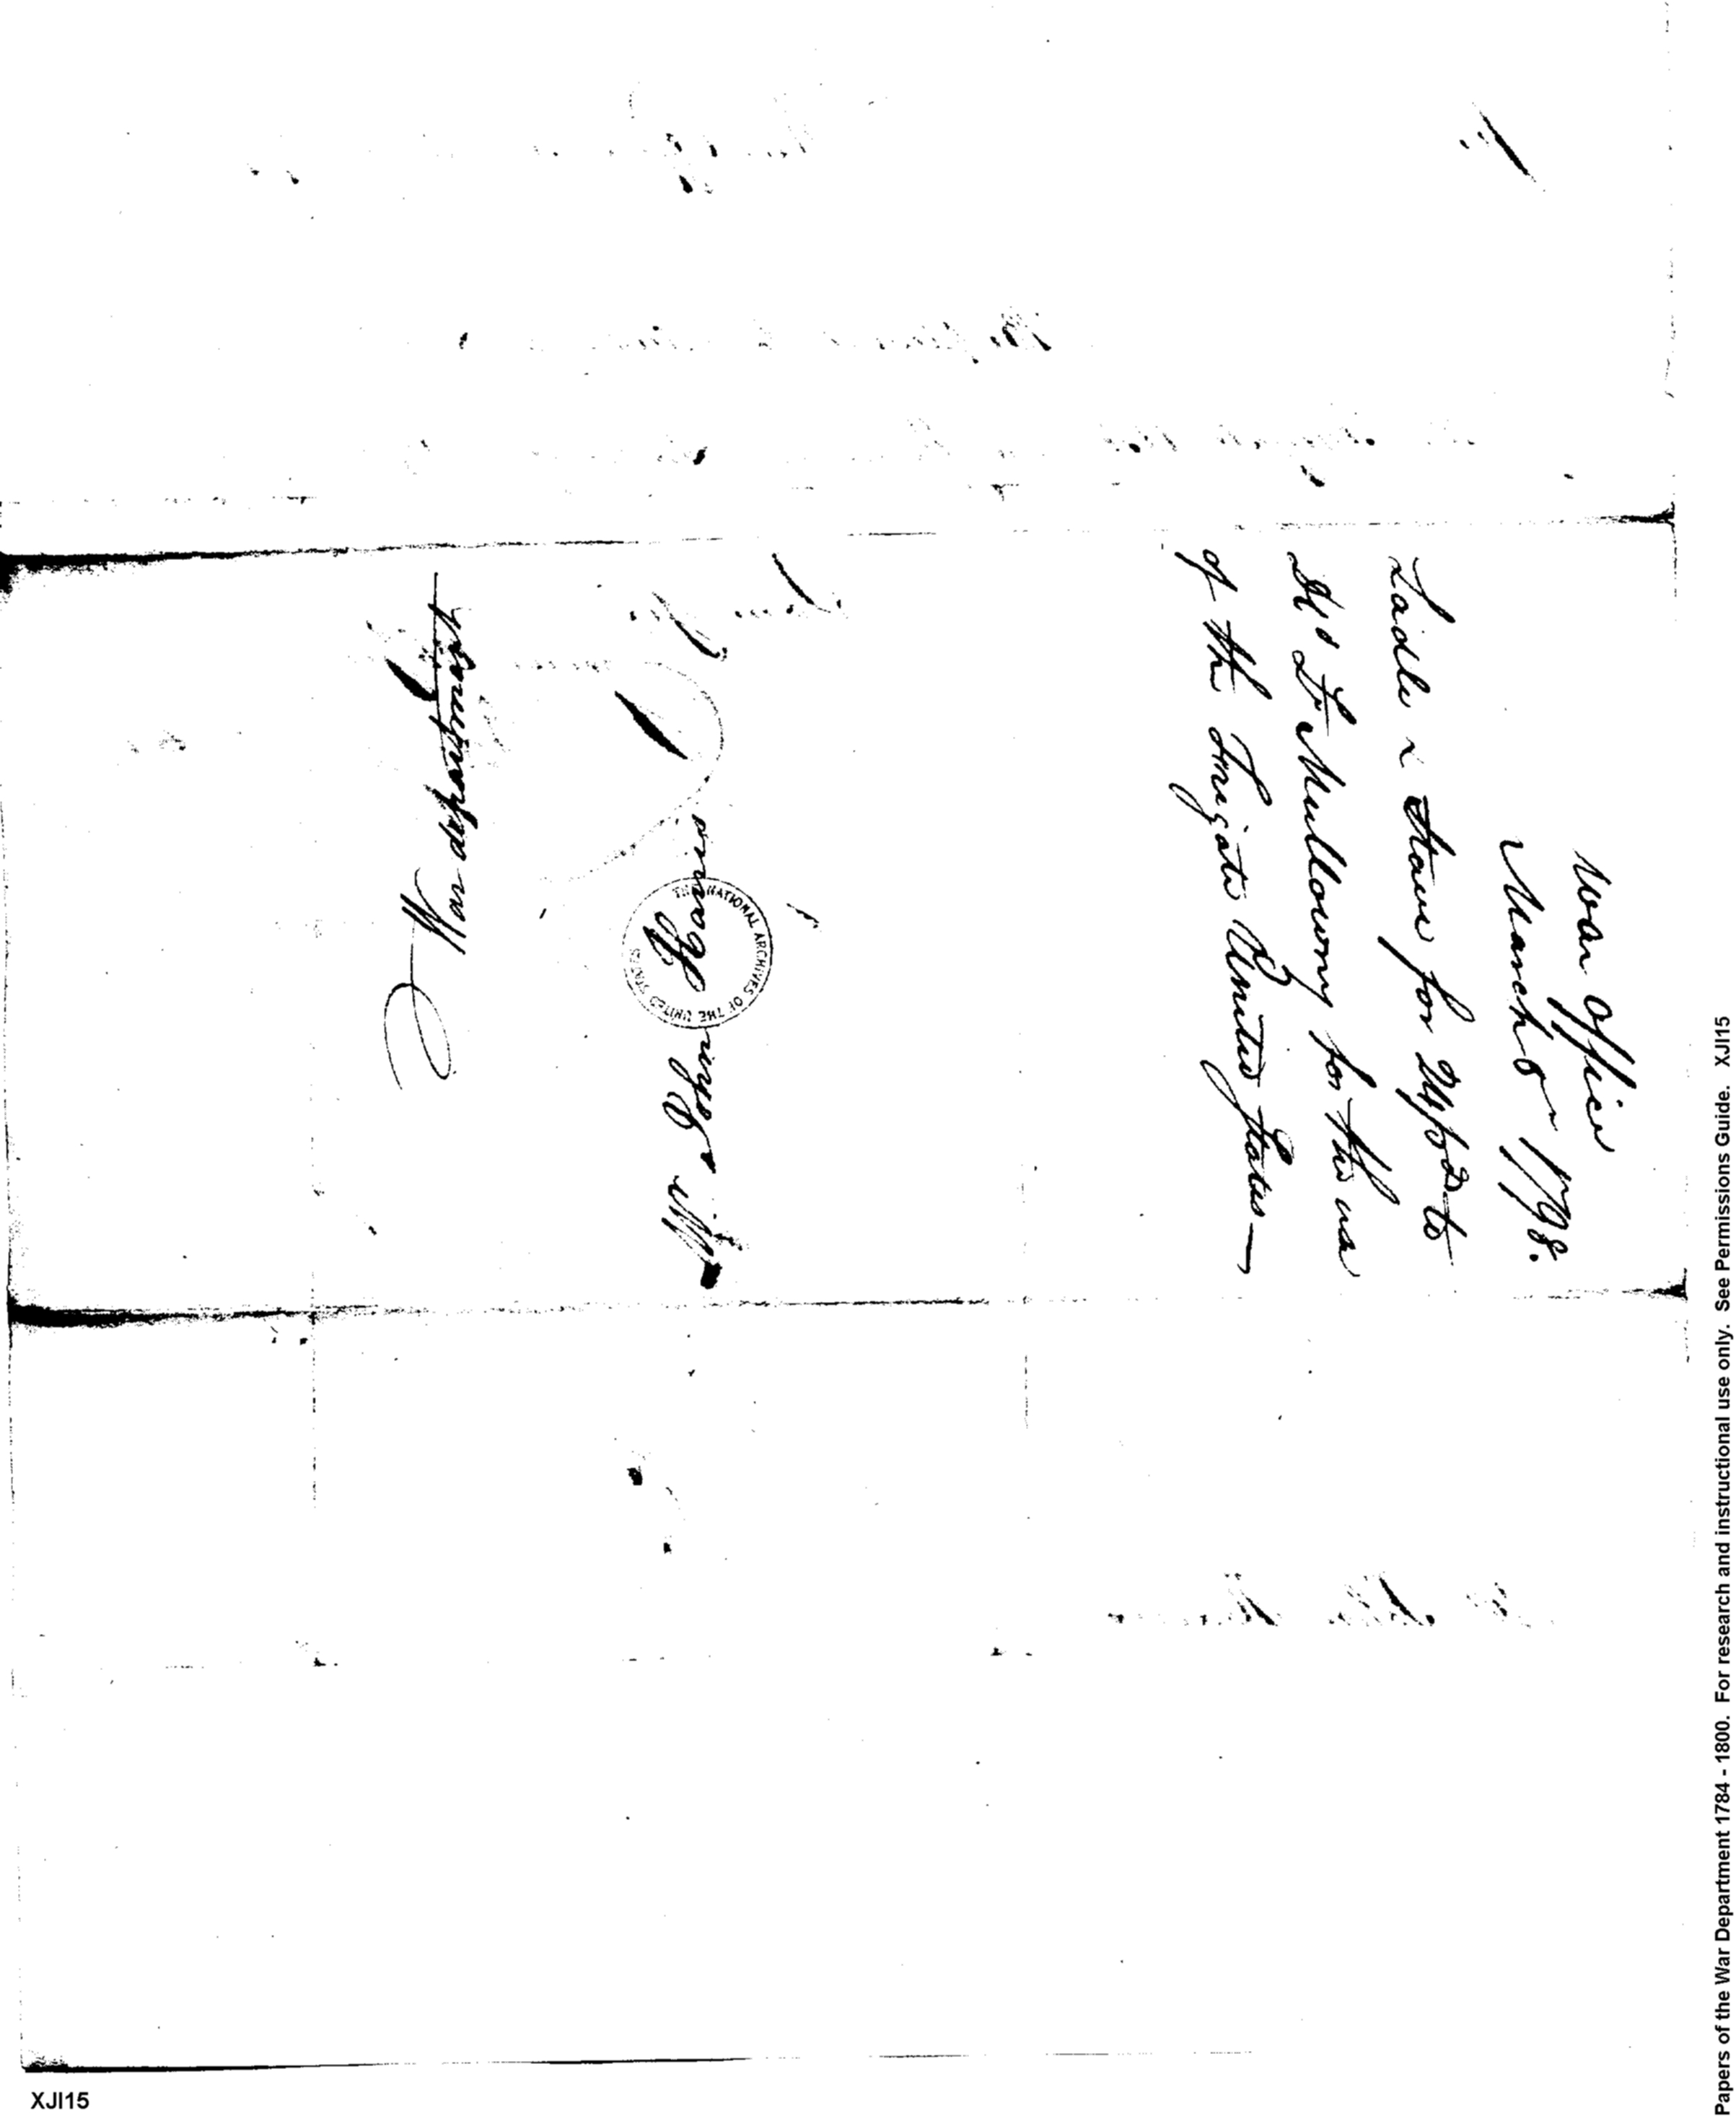 War Office
March 8 1798.
Ladle & Stave for to
Lt Mullowny for the use
of the Frigate United States—
Mr. John Harris
War department
THE NATIONAL ARCHIVES OF THE UNITED STATES
XJI15
Papers of the War Department 1784 - 1800. For research and instructional use only. See Permissions Guide. XJI15